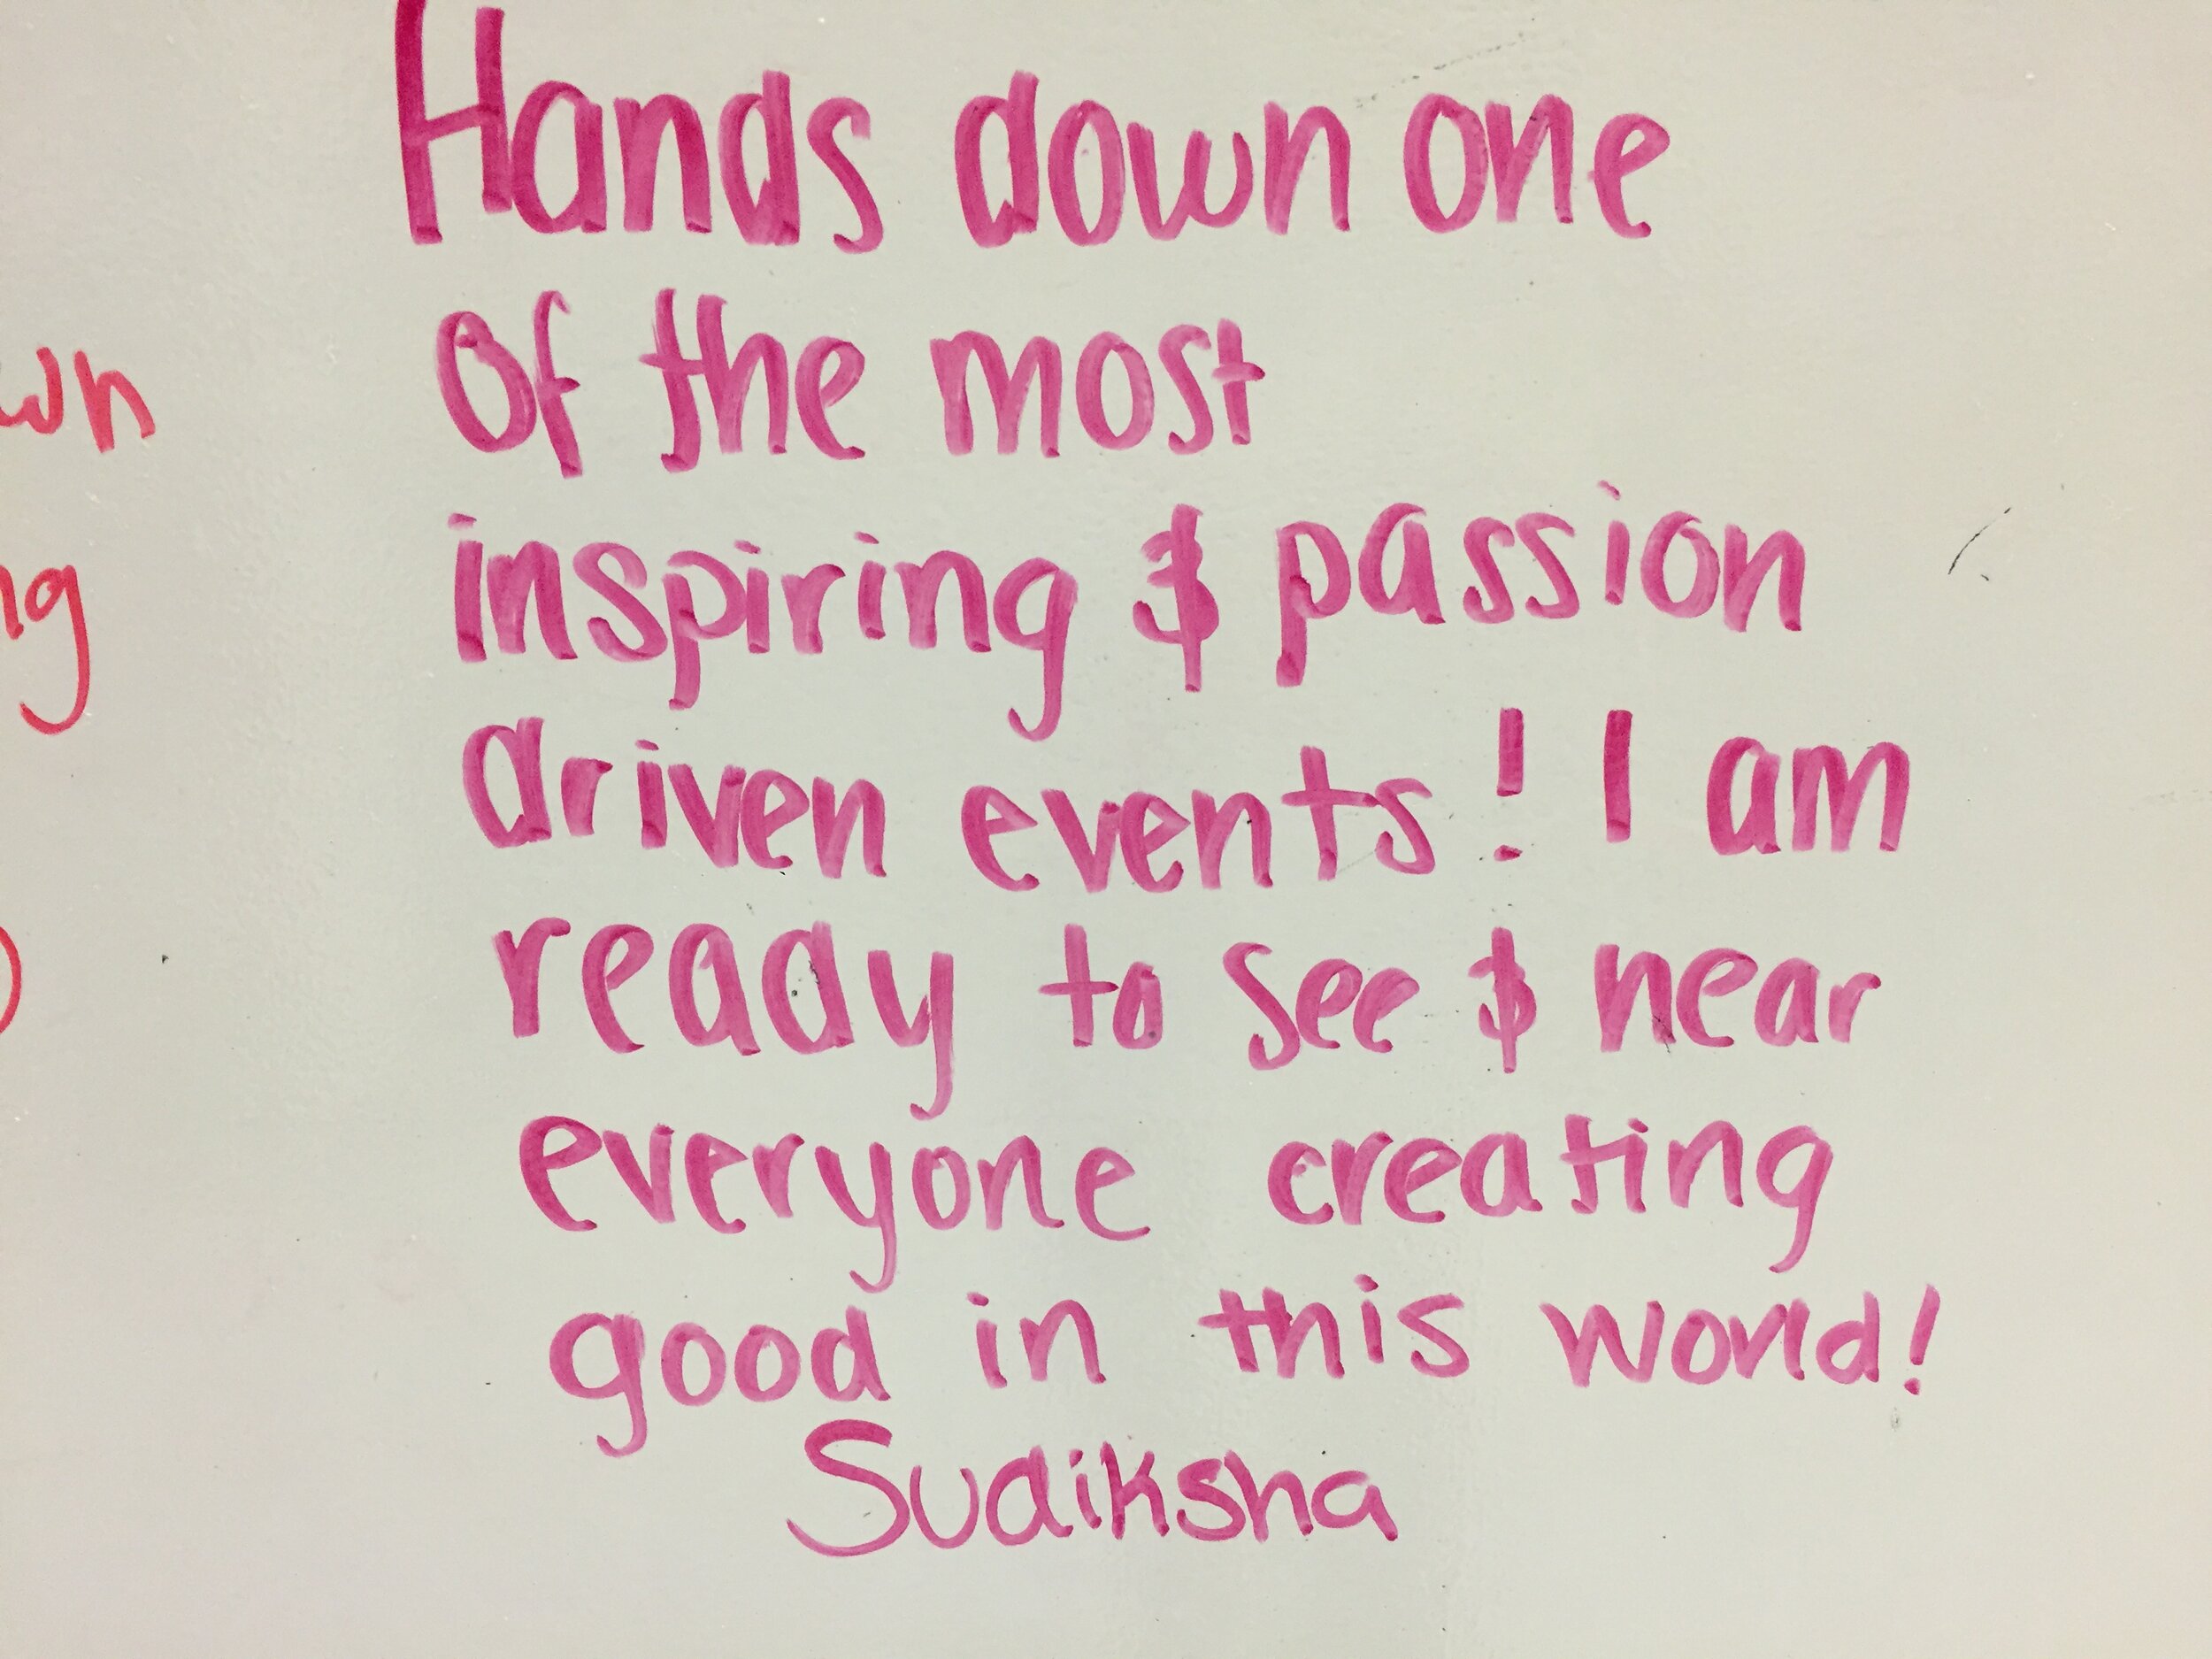 Hands down one
of the most
inspiring & passion
driven events! I am
ready to see & hear
everyone creating
good in this world!
Sudiksha
wn
ng